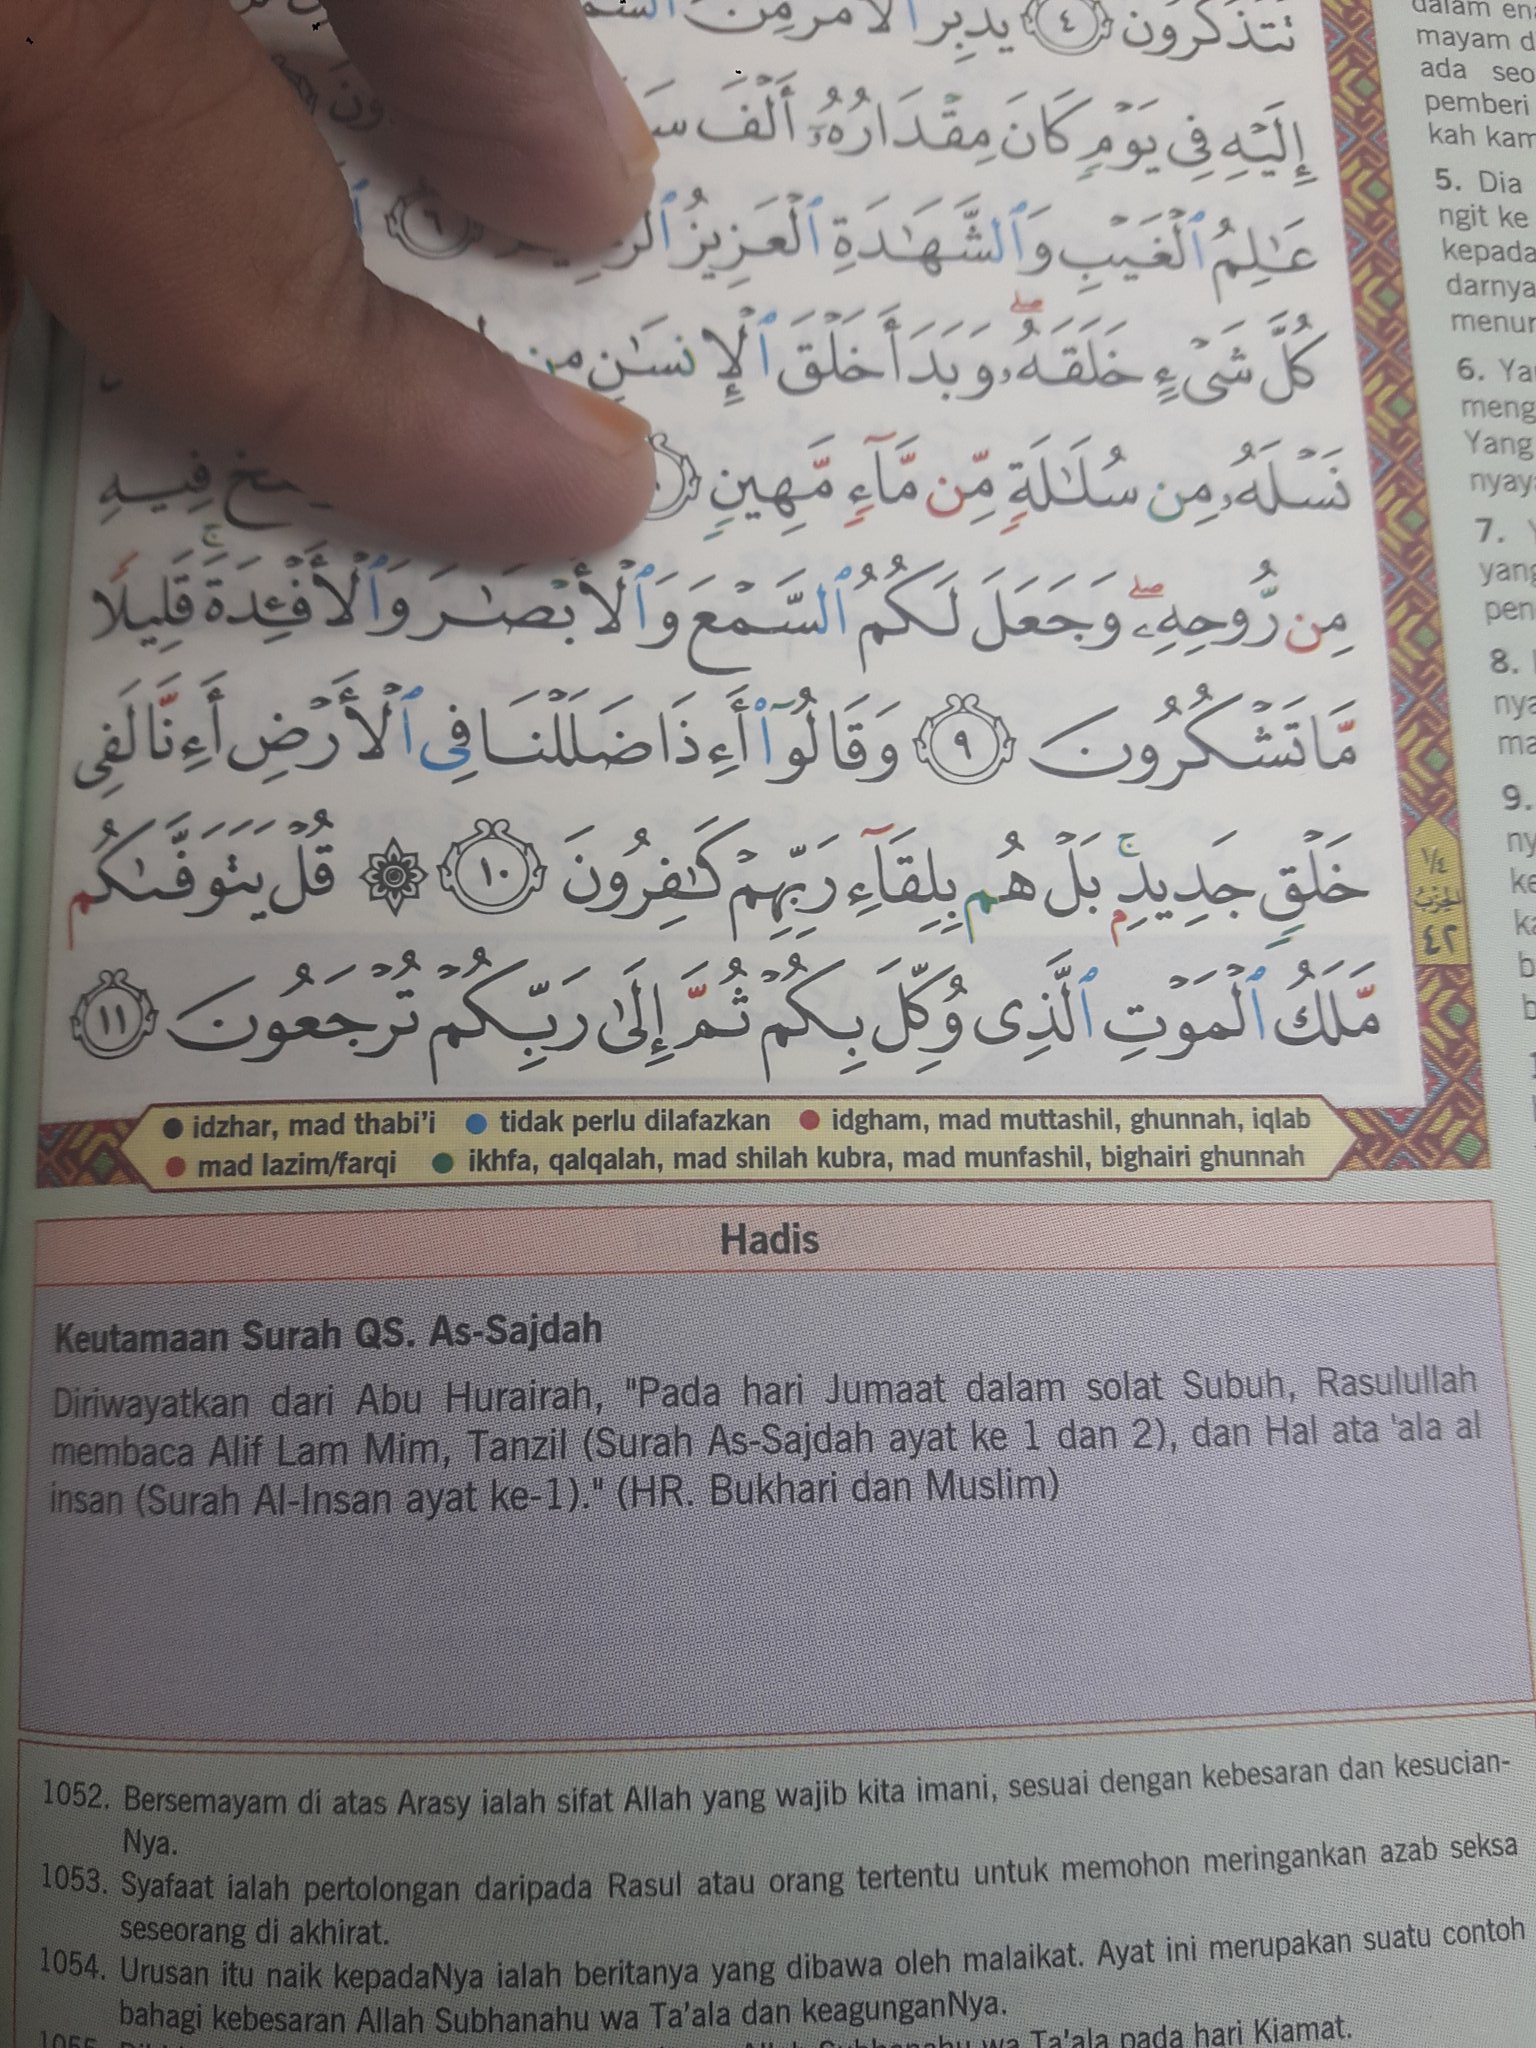 نَتَذَكَّرُونَ ٤ يُدَبِّرُ ٱلْأَمْرَ مِنَ
إِلَيْهِ فِى يَوْمٍ كَانَ مِقْدَارُهُۥٓ أَلْفَ
عَـٰلِمُ ٱلْغَيْبِ وَٱلشَّهَـٰدَةِ ٱلْعَزِيزُ ٦
كُلَّ شَىْءٍ خَلَقَهُۥ ۖ وَبَدَأَ خَلْقَ ٱلْإِنسَـٰنِ مِن
نَسْلَهُۥ مِن سُلَـٰلَةٍ مِّن مَّآءٍ مَّهِينٍ فِيهِ
مِن رُّوحِهِۦ ۖ وَجَعَلَ لَكُمُ ٱلسَّمْعَ وَٱلْأَبْصَـٰرَ وَٱلْأَفْـِٔدَةَ ۚ قَلِيلًا
مَّا تَشْكُرُونَ ٩ وَقَالُوٓا۟ أَءِذَا ضَلَلْنَا فِى ٱلْأَرْضِ أَءِنَّا لَفِى
خَلْقٍ جَدِيدٍۭ ۚ بَلْ هُم بِلِقَآءِ رَبِّهِمْ كَـٰفِرُونَ ١٠ ۞ قُلْ يَتَوَفَّىٰكُم
مَّلَكُ ٱلْمَوْتِ ٱلَّذِى وُكِّلَ بِكُمْ ثُمَّ إِلَىٰ رَبِّكُمْ تُرْجَعُونَ ١١
١/٤
الحزب
٤٢
dalam
mayam
ada
pemberi
kah
5. Dia
ngit ke
kepada
6.
Yang
7.
8.
9.
● idzhar, mad thabi'i ● tidak perlu dilafazkan ● idgham, mad muttashil, ghunnah, iqlab
● mad lazim/farqi ● ikhfa, qalqalah, mad shilah kubra, mad munfashil, bighairi ghunnah
Hadis
Keutamaan Surah QS. As-Sajdah
Diriwayatkan dari Abu Hurairah, "Pada hari Jumaat dalam solat Subuh, Rasulullah
membaca Alif Lam Mim, Tanzil (Surah As-Sajdah ayat ke 1 dan 2), dan Hal ata 'ala al
insan (Surah Al-Insan ayat ke-1)." (HR. Bukhari dan Muslim)
1052. Bersemayam di atas Arasy ialah sifat Allah yang wajib kita imani, sesuai dengan kebesaran dan kesucian-
Nya.
1053. Syafaat ialah pertolongan daripada Rasul atau orang tertentu untuk memohon meringankan azab seksa
seseorang di akhirat.
1054. Urusan itu naik kepadaNya ialah beritanya yang dibawa oleh malaikat. Ayat ini merupakan suatu contoh
bahagi kebesaran Allah Subhanahu wa Ta'ala dan keagunganNya.
Subhanahu wa Ta'ala pada hari Kiamat.